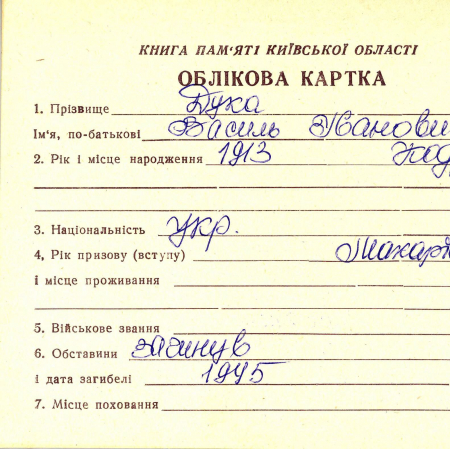 КНИГА ПАМ'ЯТІ КИЇВСЬКОЇ ОБЛАСТІ
ОБЛІКОВА КАРТКА
1. Прізвище Дука
Ім'я, по-батькові Василь Іванови
2. Рік і місце народження 1913
3. Національність укр.
4. Рік призову (вступу) Макар
і місце проживання
5. Військове звання
6. Обставини загинув
і дата загибелі 1945
7. Місце поховання